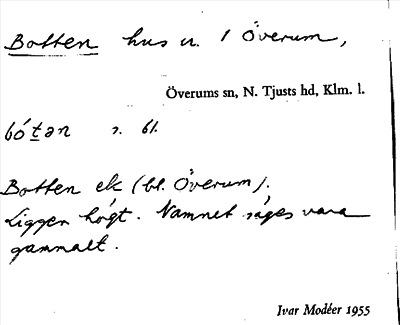 Botten hus u. / Överum,
Överums sn, N. Tjusts hd, Klm. l.
bótan s. 61.
Botten ek (bl. Överum).
Ligger högt. Namnet säges vara
gammalt.
Ivar Modéer 1955